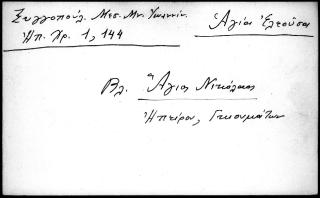 Ξυγγοπούλ. Μεσ. Μν. Ἰωαννίν.
Ἠπ. Χρ. 1, 144
Ἁγία Ἐλεοῦσα
Βλ. Ἅγιος Νικόλαος
Ἠπείρου, Γκιουμάτων